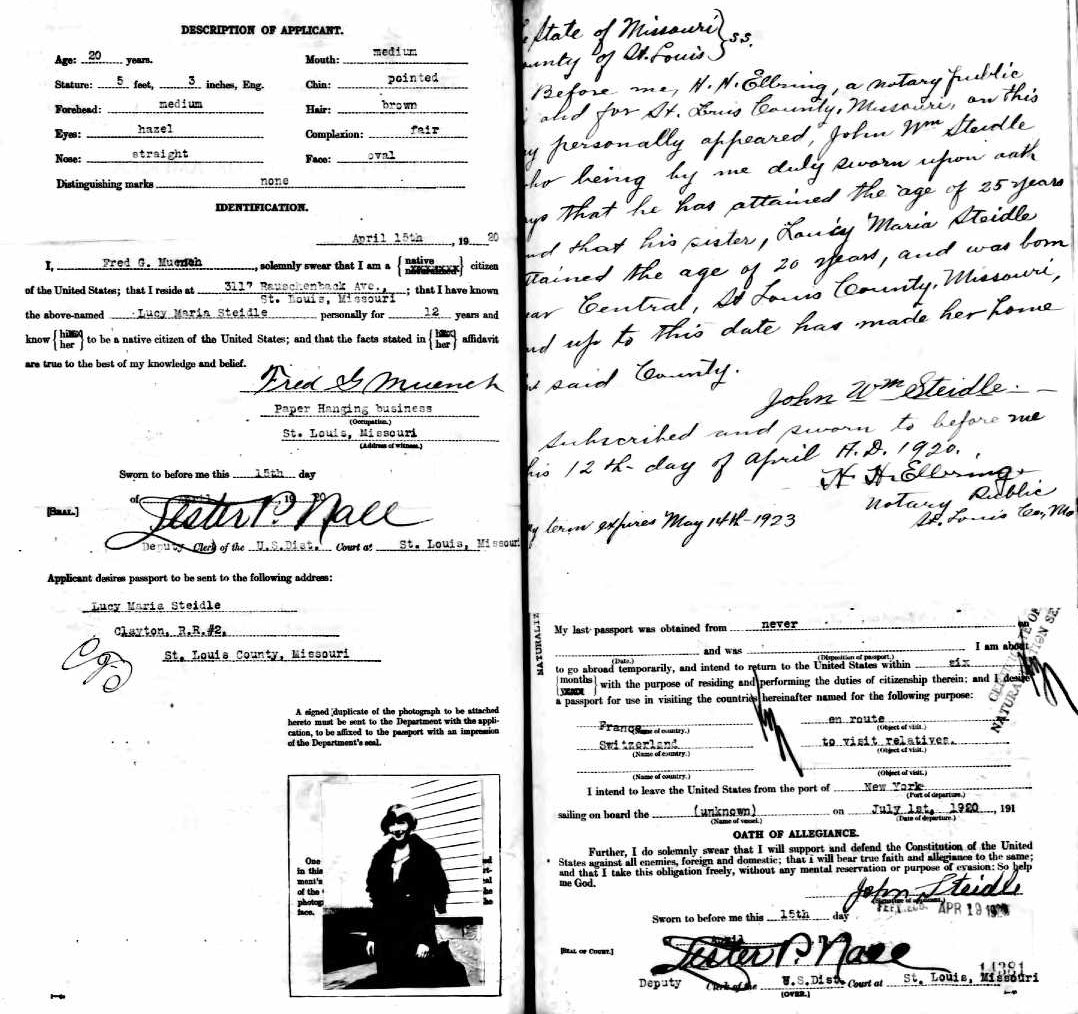 DESCRIPTION OF APPLICANT.
Age: 20 years.
Mouth: medium
Stature: 5 feet, 3 inches, Eng.
Chin: pointed
Forehead: medium
Hair: brown
Eyes: hazel
Complexion: fair
Nose: straight
Face: oval
Distinguishing marks none
IDENTIFICATION.
April 15th, 1920
I, Fred G. Muench, solemnly swear that I am a {native} citizen
of the United States; that I reside at 3117 Rauschenback Ave.,
St. Louis, Missouri; that I have known
the above-named Lucy Maria Steidle personally for 12 years and
know {him her} to be a native citizen of the United States; and that the facts stated in {his her} affidavit
are true to the best of my knowledge and belief.
Fred G Muench
Paper Hanging business
(Occupation.)
St. Louis, Missouri
(Address of witness.)
Sworn to before me this 15th day
of April, 1920
[SEAL.]
Lester P. Nall
Deputy Clerk of the U.S.Dist. Court at St. Louis, Missouri
Applicant desires passport to be sent to the following address:
Lucy Maria Steidle
Clayton, R.R.#2,
St. Louis County, Missouri
A signed duplicate of the photograph to be attached
hereto must be sent to the Department with the appli-
cation, to be affixed to the passport with an impression
of the Department's seal.
One
in this
ment's
of the
photog
face.
State of Missouri } ss.
unty of St. Louis
Before me, H. H. Ellbring, a notary public
and for St. Louis County, Missouri, on this
y personally appeared, John Wm Steidle
ho being by me duly sworn upon oath
ys that he has attained the age of 25 years
nd that his sister, Loucy Maria Steidle
tained the age of 20 years, and was born
ar Central, St Louis County, Missouri,
nd up to this date has made her home
said County.
John Wm Steidle.
subscribed and sworn to before me
his 12th day of April A.D. 1920.
H. H. Ellbring
Notary Public
St. Louis Co, Mo
y term expires May 14th-1923
My last passport was obtained from never
(Date.) and was (Disposition of passport.) I am about
to go abroad temporarily, and intend to return to the United States within six
{months} with the purpose of residing and performing the duties of citizenship therein; and I desire
a passport for use in visiting the countries hereinafter named for the following purpose:
France
(Name of country.)
en route
(Object of visit.)
Switzerland
(Name of country.)
to visit relatives.
(Object of visit.)
(Name of country.)
(Object of visit.)
I intend to leave the United States from the port of New York
(Port of departure.)
sailing on board the (unknown) on July 1st, 1920, 191
(Name of vessel.)
(Date of departure.)
OATH OF ALLEGIANCE.
Further, I do solemnly swear that I will support and defend the Constitution of the United
States against all enemies, foreign and domestic; that I will bear true faith and allegiance to the same;
and that I take this obligation freely, without any mental reservation or purpose of evasion: So help
me God.
John Steidle
(Signature of applicant.)
APR 19 1920
Sworn to before me this 15th day
[SEAL OF COURT.]
Lester P. Nall
14381
Deputy Clerk of the U.S.Dist. Court at St. Louis, Missouri
(OVER.)